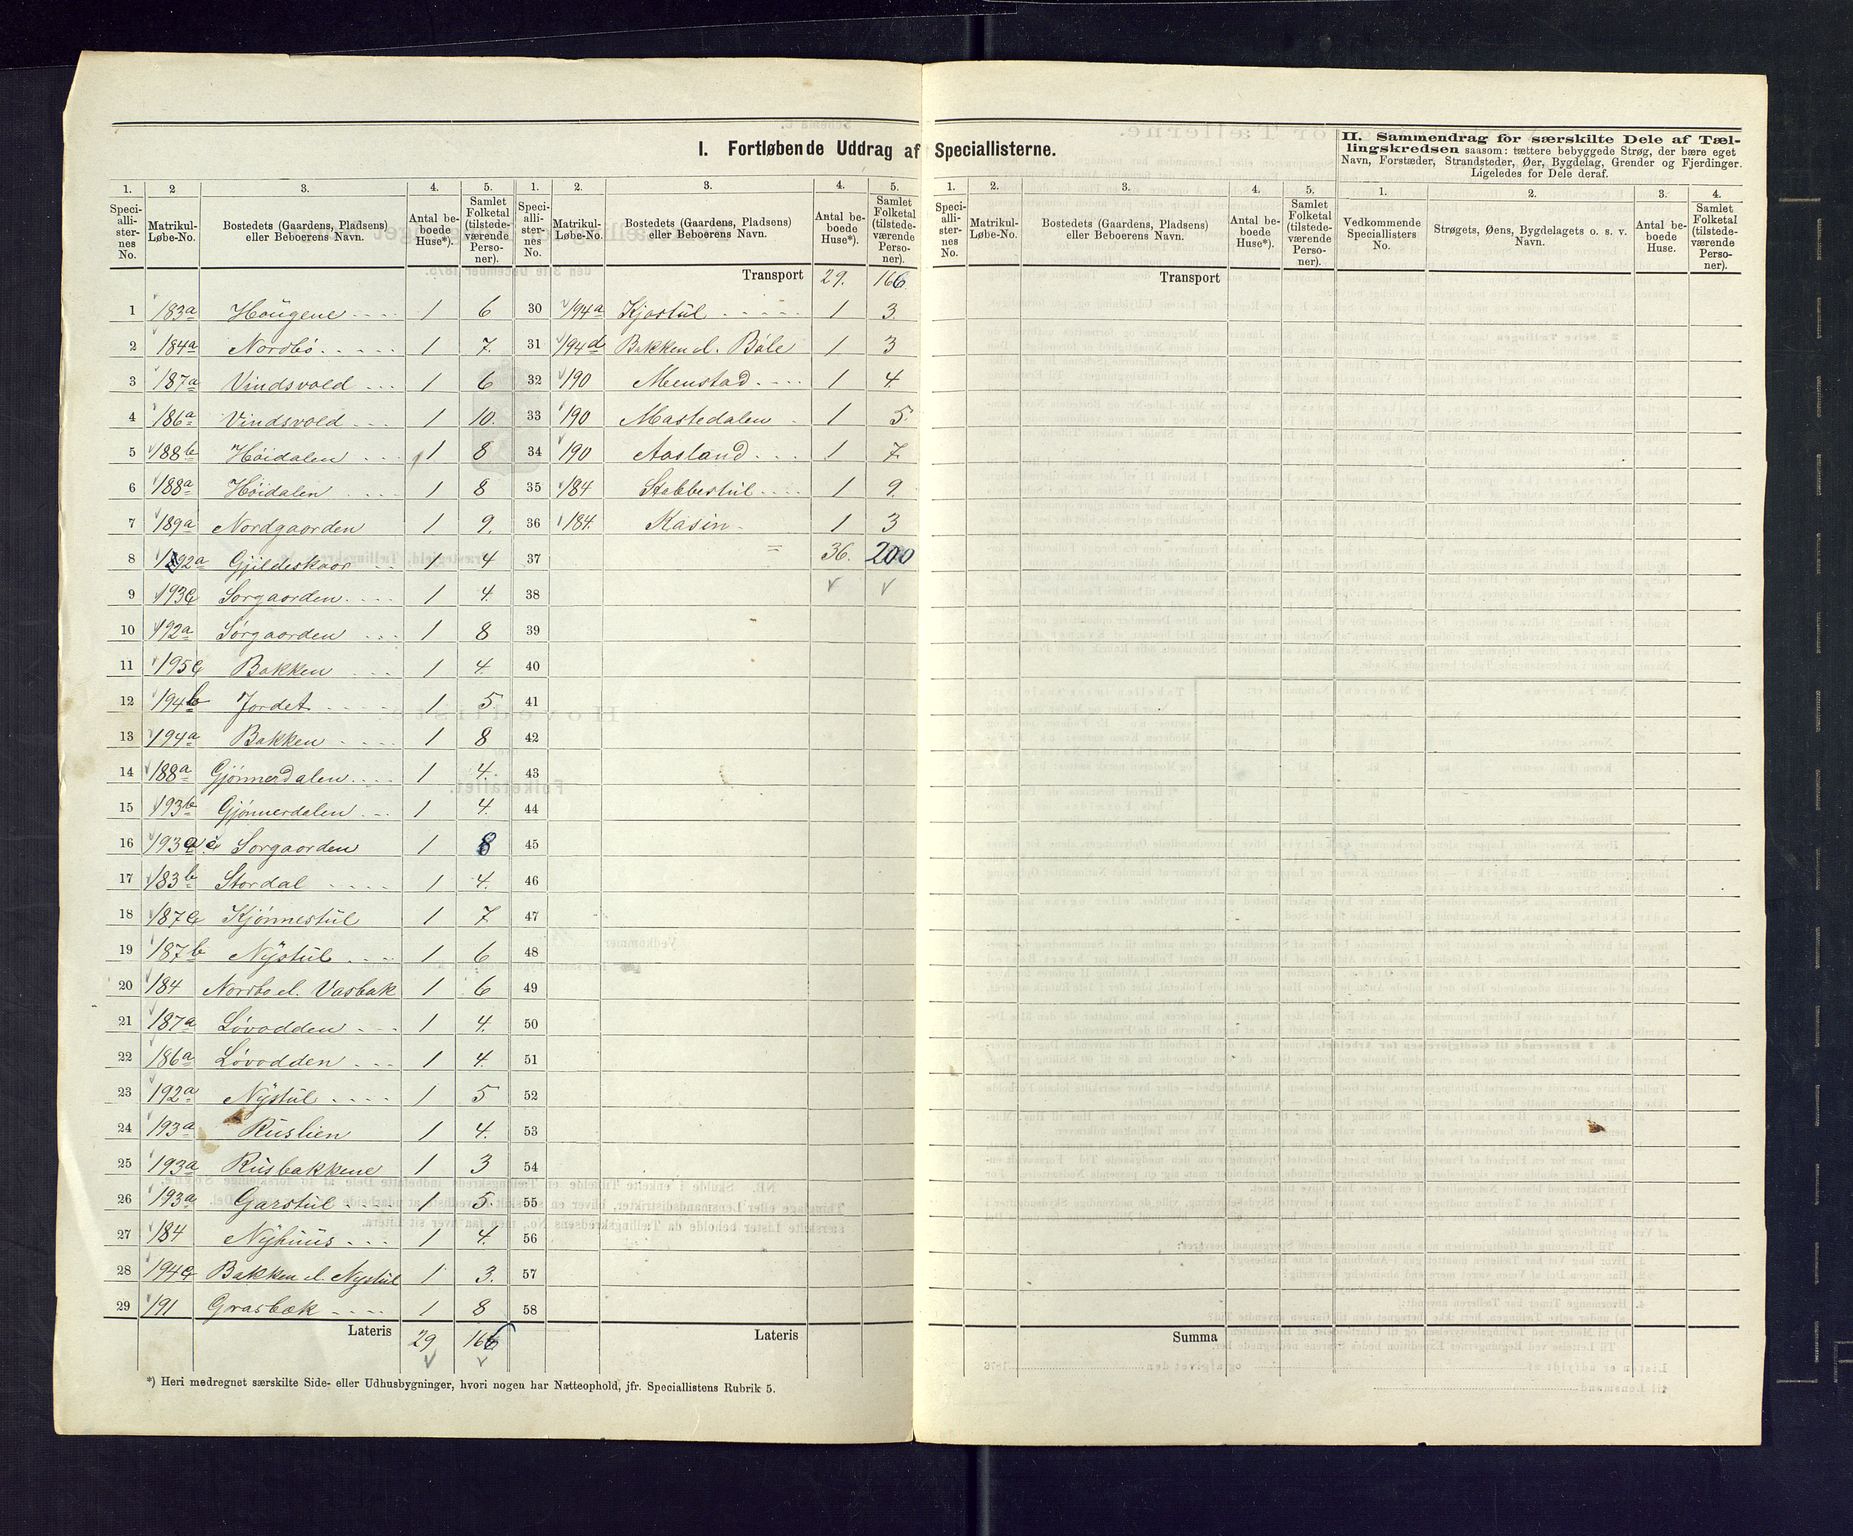 I. Fortløbende Uddrag af Speciallisterne.
II. Sammendrag for særskilte Dele af Tællingskredsen saasom: tættere bebyggede Strøg, der bære eget
Navn, Forstæder, Strandsteder, Øer, Bygdelag, Grender og Fjerdinger.
Ligeledes for Dele deraf.
1. 2 3. 4. 5. 1. 2. 3. 4. 5. 1. 2. 3. 4. 5. 1. 2. 3. 4.
Speciallisternes No. Matrikul-Løbe-No. Bostedets (Gaardens, Pladsens) eller Beboerens Navn. Antal beboede Huse*). Samlet Folketal (tilstedeværende Personer).
Speciallisternes No. Matrikul-Løbe-No. Bostedets (Gaardens, Pladsens) eller Beboerens Navn. Antal beboede Huse*). Samlet Folketal (tilstedeværende Personer).
Speciallisternes No. Matrikul-Løbe-No. Bostedets (Gaardens, Pladsens) eller Beboerens Navn. Antal beboede Huse*). Samlet Folketal (tilstedeværende Personer).
Vedkommende Speciallisters No. Strøgets, Øens, Bygdelagets o. s. v. Navn. Antal beboede Huse. Samlet Folketal (tilstedeværende Personer).
Transport 29. 166. Transport
1 183a Haugene 1 6 30 194a Kjostul 1 3
2 184a Nordbø 1 7. 31 194d Bakken d. Böle 1 3
3 187a Vindsvold 1 6 32 190 Menstad 1 4
4 186a Vindsvold 1 10. 33 190 Mastedalen 1 5.
5 188b Høidalen 1 8 34 190 Aasland 1 7.
6 188a Høidalen 1 8 35 184 Stabbestul 1 9.
7 189a Nordgaarden 1 9. 36 184. Kasin 1 3
8 192a Gjildeskaar 1 4 37 = 36. 200
9 193c Sorgaarden 1 4. 38
10 192a Sørgaarden 1 8 39
11 195c Bakken 1 4. 40
12 194b Jordet 1 5. 41
13 194a Bakken 1 8 42
14 188a Gjønnerdalen 1 4. 43
15 193b Gjønnerdalen 1 4. 44
16 193a c Sorgaarden 1 8 45
17 183b Stordal 1 4. 46
18 187c Kjønnestul 1 7 47
19 187b Nÿstul 1 6 48
20 184 Nordbo d. Vasbak 1 6 49
21 187a Løvodden 1 4. 50
22 186a Løvodden 1 4. 51
23 192a Nÿstul 1 5 52
24 193a Ruslien 1 4. 53
25 193a Rusbakkene 1 3 54
26 193a Garstul 1 5. 55
27 184 Nÿhuus 1 4. 56
28 194c Bakken d. Nystul 1 3. 57
29 191 Grasbæk 1 8 58
Lateris 29 166 Lateris Summa
*) Heri medregnet særskilte Side- eller Udhusbygninger, hvori nogen har Natteophold, jfr. Speciallistens Rubrik 5.